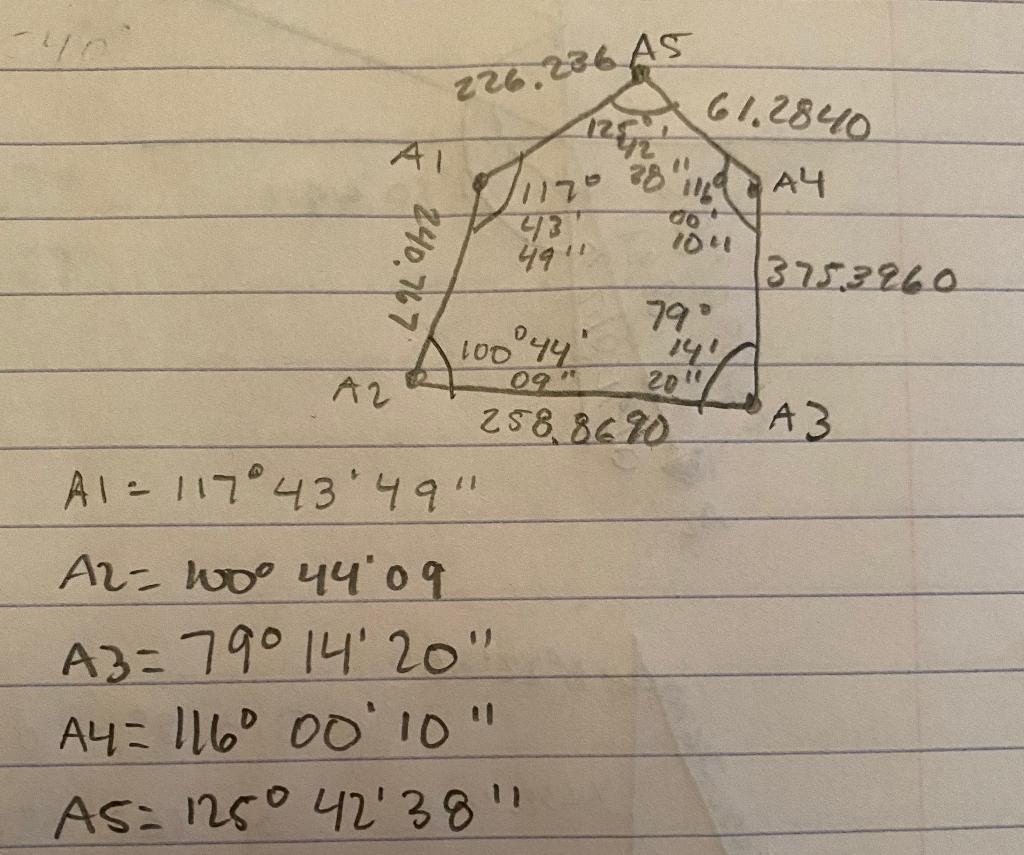 A5
226.236
61.2840
125°
42'
38"
A1
A4
117°
43'
49"
116°
00'
10"
240.767
375.3960
79°
14'
20"
100°44'
09"
A2
A3
258.8690
A1 = 117° 43' 49"
A2 = 100° 44' 09
A3 = 79° 14' 20"
A4 = 116° 00' 10"
A5 = 125° 42' 38"